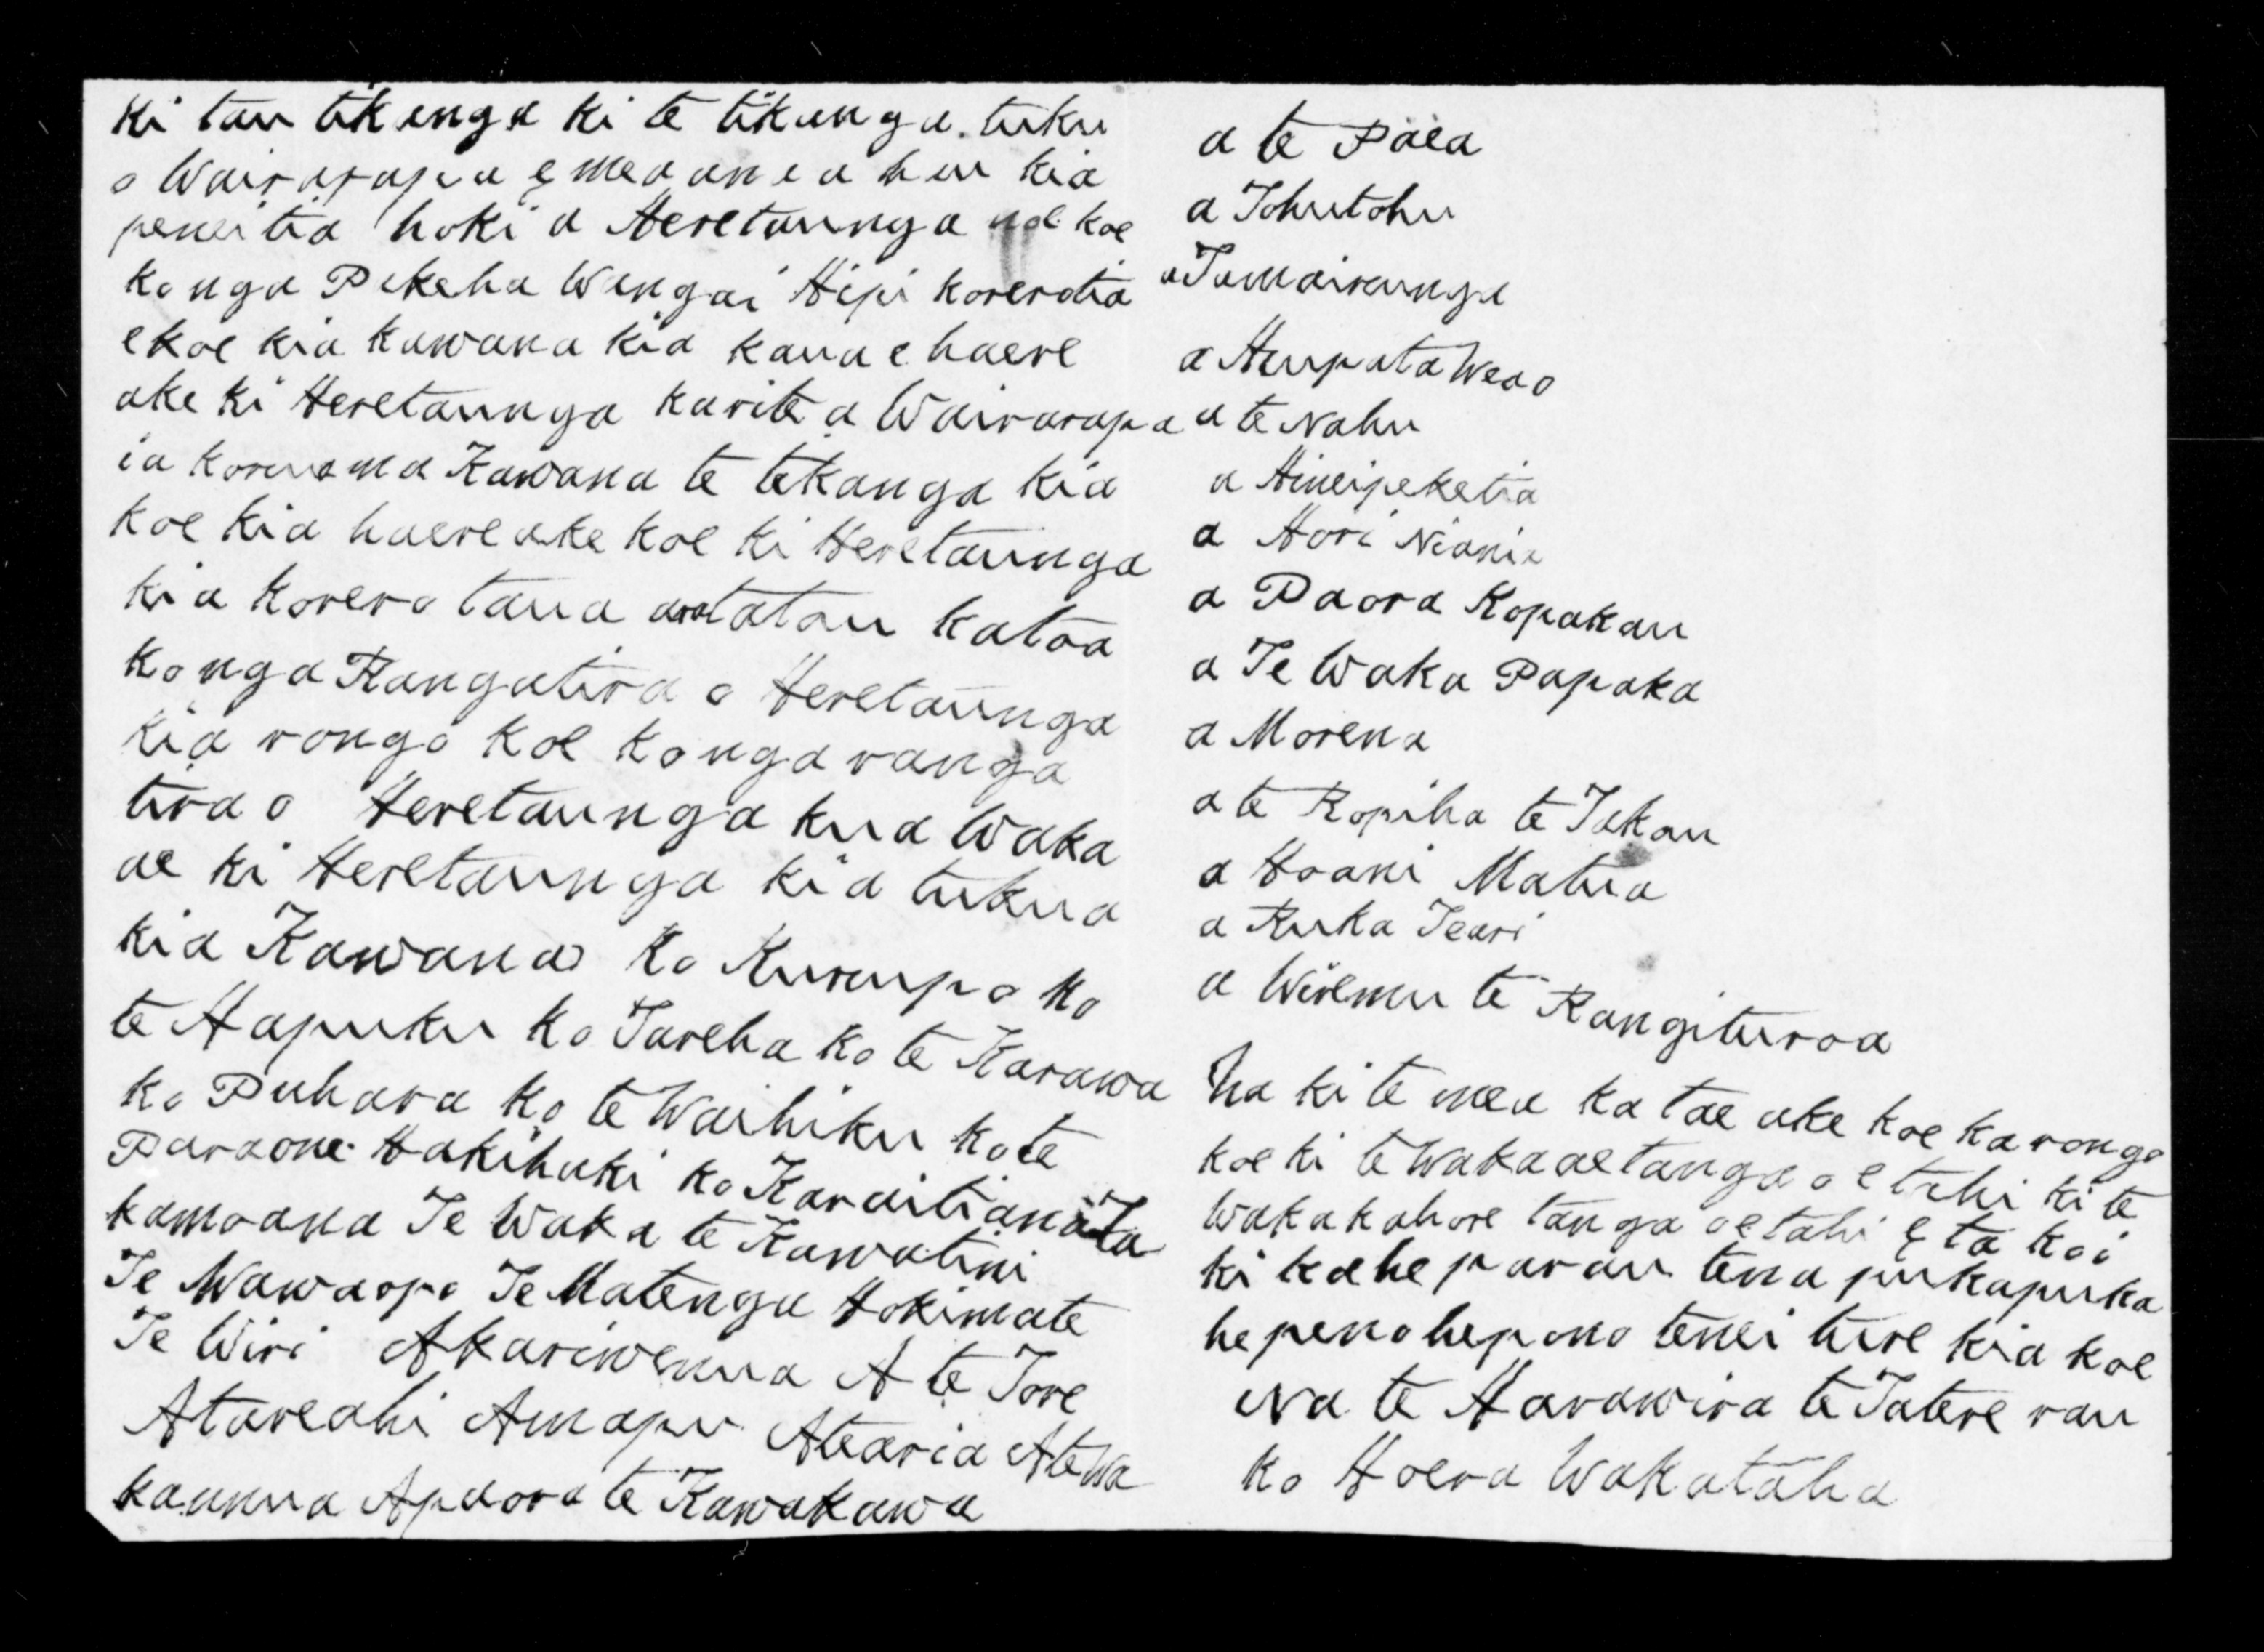 Ki tau tikanga ki te tikanga tuku
o Wairarapa e mea ana a hau kia
peneitia hoki a Heretaunga koe
ko nga Pakeha Wangai Hipi korerotia
e koe kia kawana kia kaua e haere
ake ki Heretaunga karite a Wairarapa
ia Kawana te tikanga kia
koe kia haere ake koe ki Heretaunga
kia korero taua tatou katoa
ko nga Rangatira o Heretaunga
kia rongo koe ko nga ranga
tira o Heretaunga kua Waka
ae ki Heretaunga kia tukua
kia Kawana ko Kurupo ko
te Hapuku ko Tareha ko te Karawa
ko Puhara ko te Waihiku ko te
Paraone Hakihaki ko Karaitiana Ta
kamoana Te Waka te Kawatini
Te Wawaopo Te Matenga Hokimate
Te Wiri Akariwenua A te Tore
Atareahi Amapu Atearia Atewa
kaunua Apaora te Kawakawa
a te Paea
a Tohutohu
a Tamairunga
a Herepata Weao
a te Nahu
a Hineipeketia
a Hori Niania
a Paora Kopakau
a Te Waka Papaka
a Morena
a te Ropiha te Takou
a Hoani Matua
a Ruka Teari
a Wiremu te Rangituroa
Na ki te mea ka tae ake koe ka rongo
koe ki te Wakaaetanga o etahi ki te
Wakakahore tanga o etahi e ta koi
ki ka he parau tena pukapuka
he pono he pono tenei ture kia koe
Na te Harawira te Tatere rau
ko Hoera Wakataha